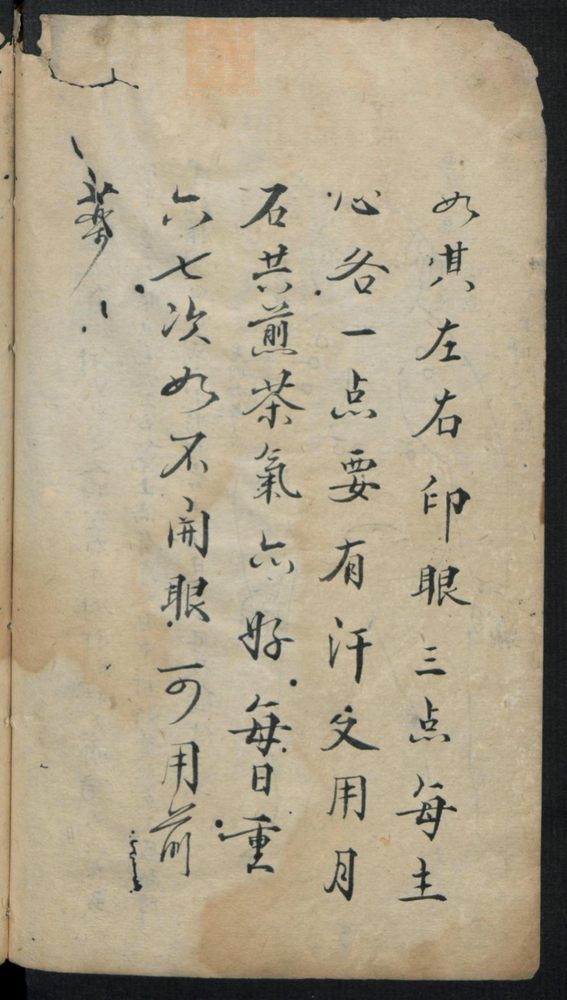 如淇左右印眼三点每主
心各一点要有汗又用月
石共煎茶氣六好每日重
六七次如不開眼可用前
藥